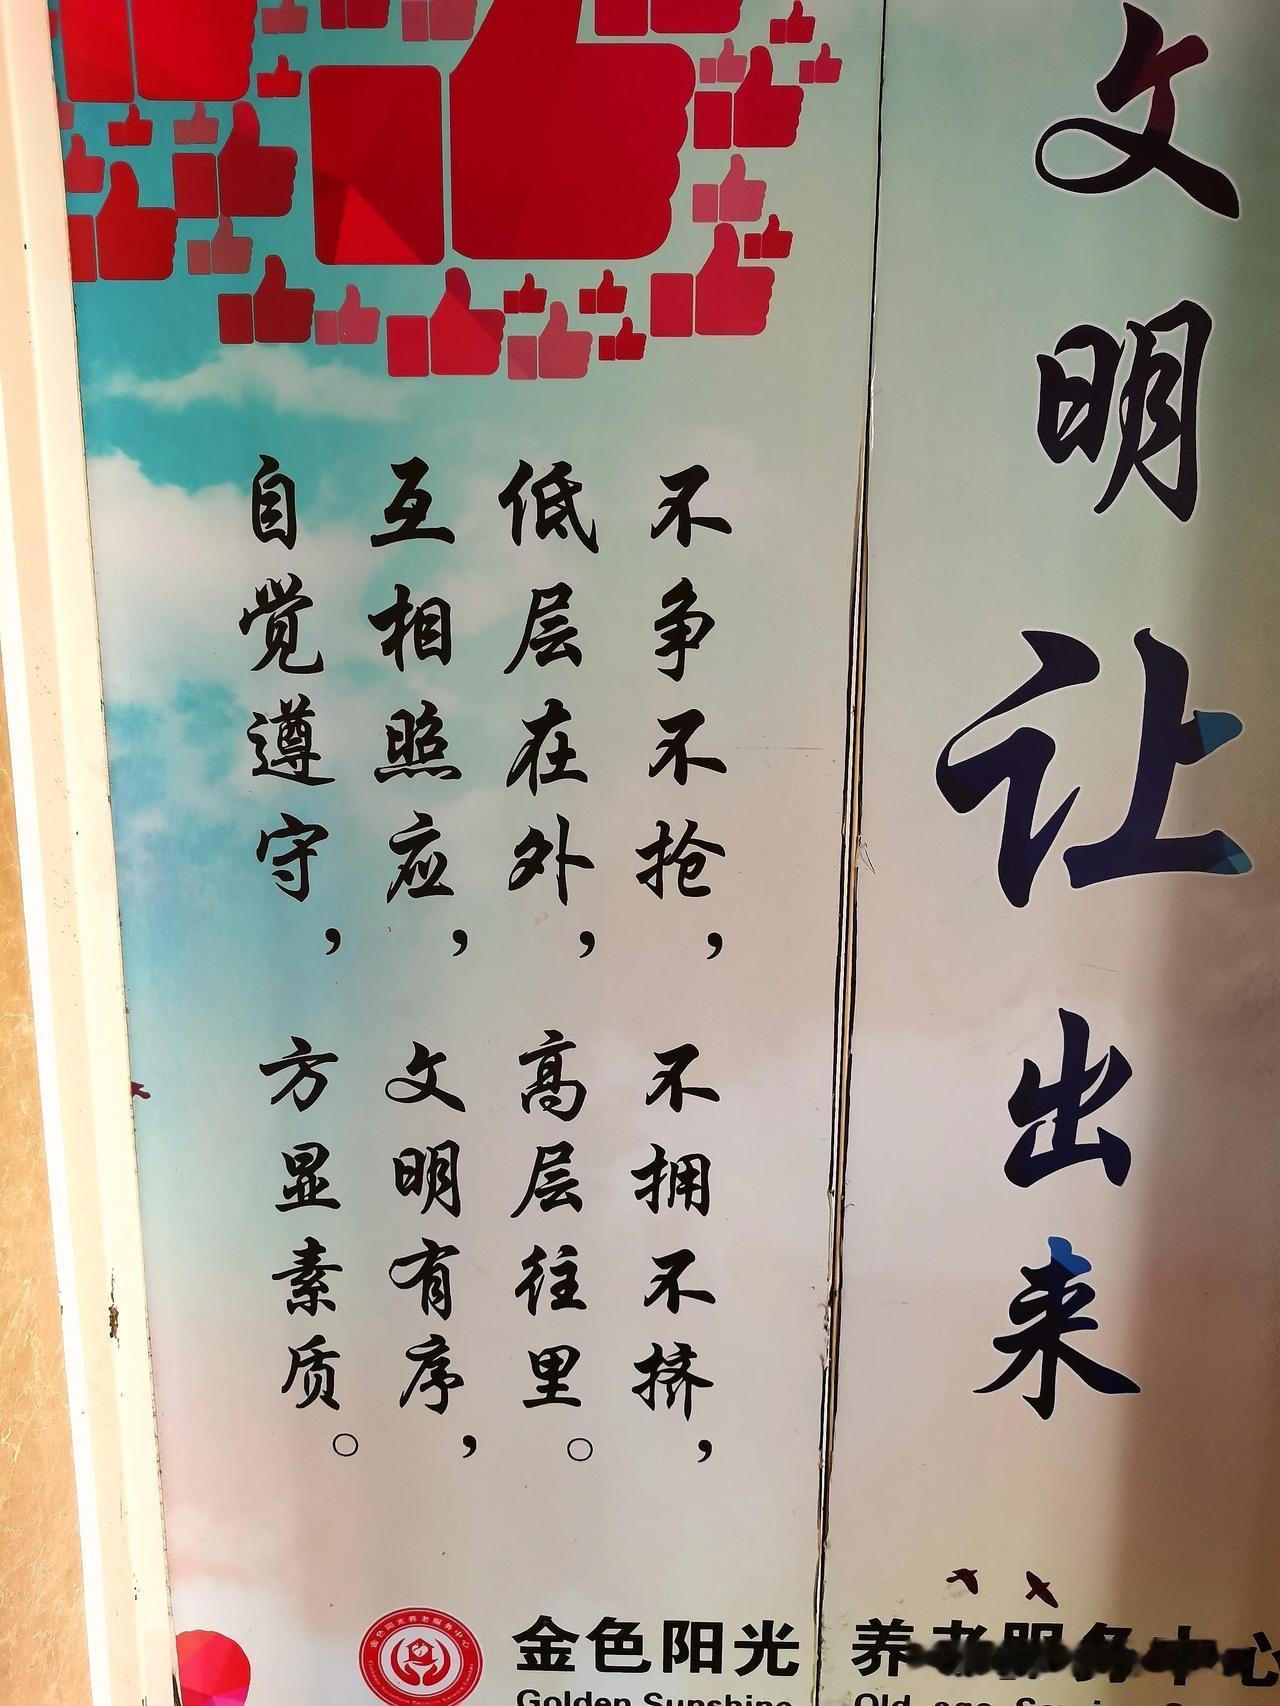 文明让出来
不争不抢，不拥不挤，
低层在外，高层往里。
互相照应，文明有序，
自觉遵守，方显素质。
金色阳光养老服务中心
Golden Sunshine Old age
金色阳光养老服务中心